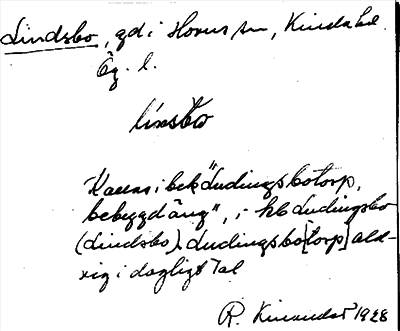 Lindsbo, gd i Horns sn, Kinda hd.
Ög. l.
línsbo
Kallas i bek "Ludingsbotorp,
bebyggd äng", i hb Ludingsbo
(Lindsbo). Ludingsbo[torp] ald-
rig i dagligt tal
R. 1928